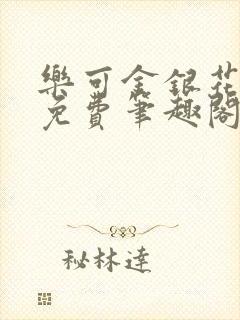 樂可金銀花
免費筆趣閣
秘林達